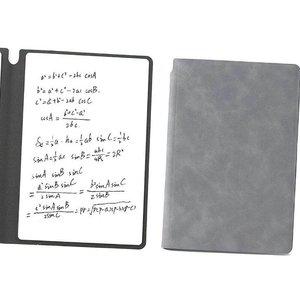 a²=b²+c²-2bc cosA
b²=a²+c²-2ac cosB.
c²=a²+b²-2ab cosC
cosA = (b²+c²-a²)/(2bc)
S = ½a·ha = ½ab sinC = ½bc
sinA = ½ac sinB = abc/4R = 2R²
sinA sinB sinC
= (a²sinB sinC)/(2sinA) = (b²sinA sinC)/(2sinB)
= (c²sinA sinB)/(2sinC) = pr = √(p(p-a)(p-b)(p-c))